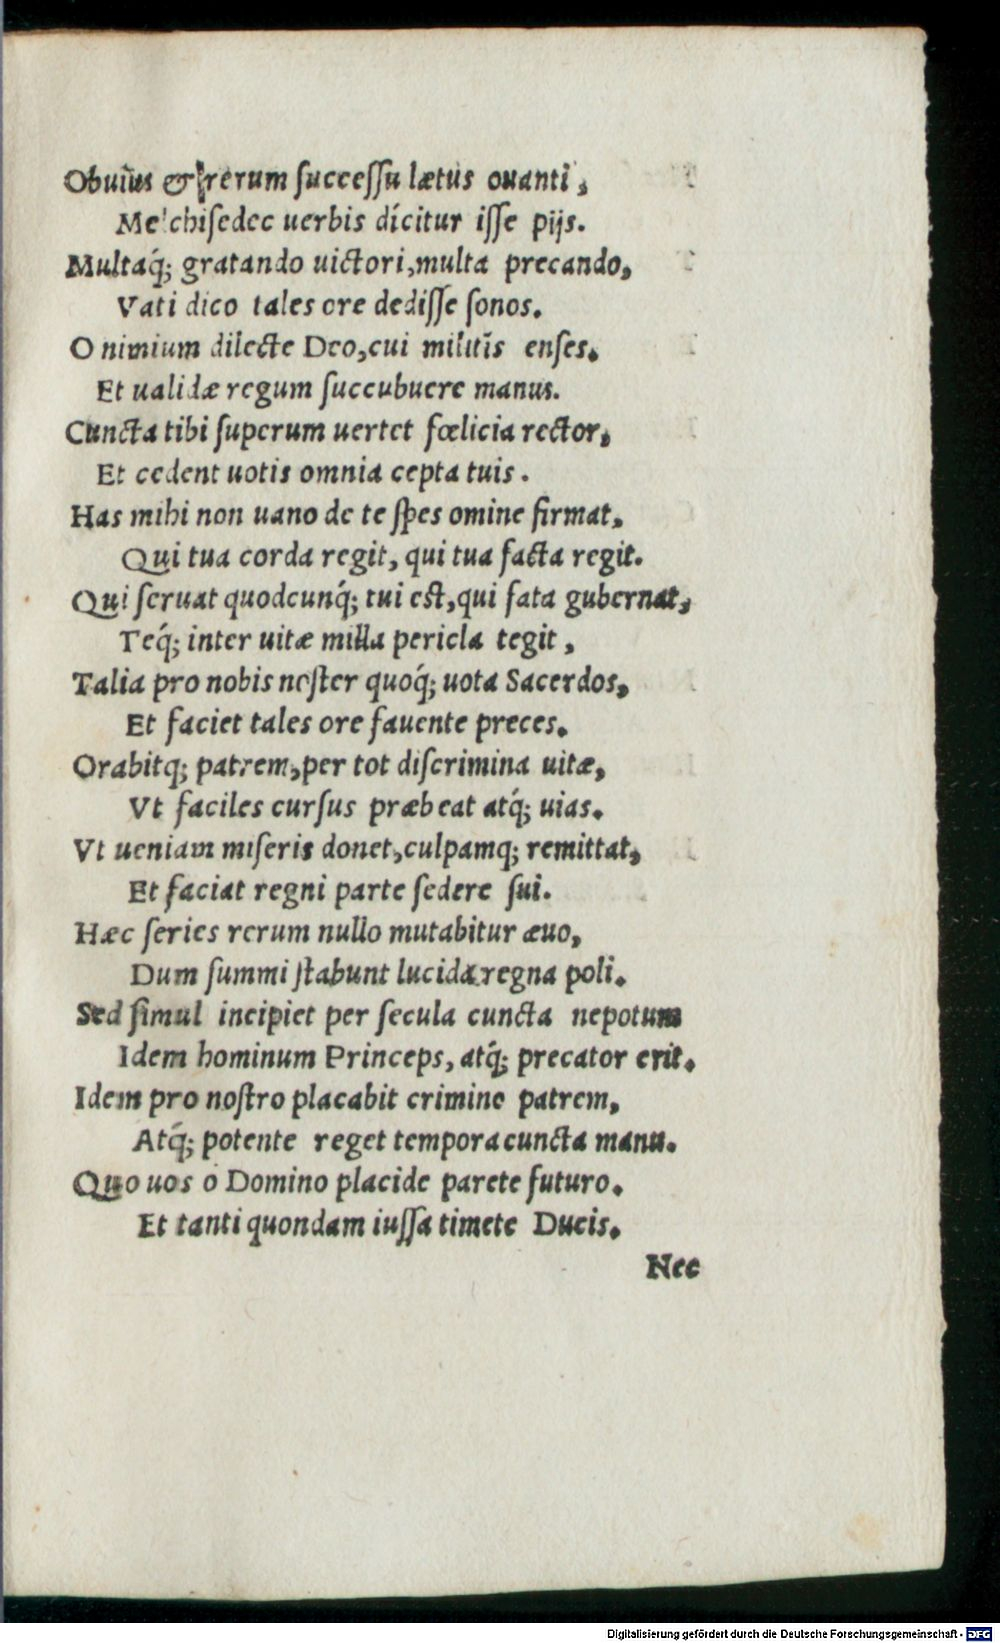 Obuius & rerum ſucceſſu lætus ouanti,
Melchiſedec uerbis dicitur iſſe pijs.
Multaq́; gratando uictori, multa precando,
Vati dico tales ore dediſſe ſonos.
O nimium dilecte Deo, cui militis enſes.
Et ualidæ regum ſuccubuere manus.
Cuncta tibi ſuperum uertet fœlicia rector,
Et cedent uotis omnia cepta tuis.
Has mihi non uano de te ſpes omine firmat,
Qui tua corda regit, qui tua facta regit.
Qui ſeruat quodcunq́; tui est, qui fata gubernat,
Teq́; inter uitæ milla pericla tegit,
Talia pro nobis noſter quoq́; uota Sacerdos,
Et faciet tales ore fauente preces.
Orabitq; patrem, per tot diſcrimina uitæ,
Vt faciles curſus præbeat atq́; uias.
Vt ueniam miſeris donet, culpamq; remittat,
Et faciat regni parte ſedere ſui.
Hæc ſeries rerum nullo mutabitur æuo,
Dum ſummi ſtabunt lucida regna poli.
Sed ſimul incipiet per ſecula cuncta nepotum
Idem hominum Princeps, atq́; precator erit.
Idem pro noſtro placabit crimine patrem,
Atq́; potente reget tempora cuncta manu.
Quo uos o Domino placide parete futuro.
Et tanti quondam iuſſa timete Ducis.
Nec
Digitalisierung gefördert durch die Deutsche Forschungsgemeinschaft - DFG